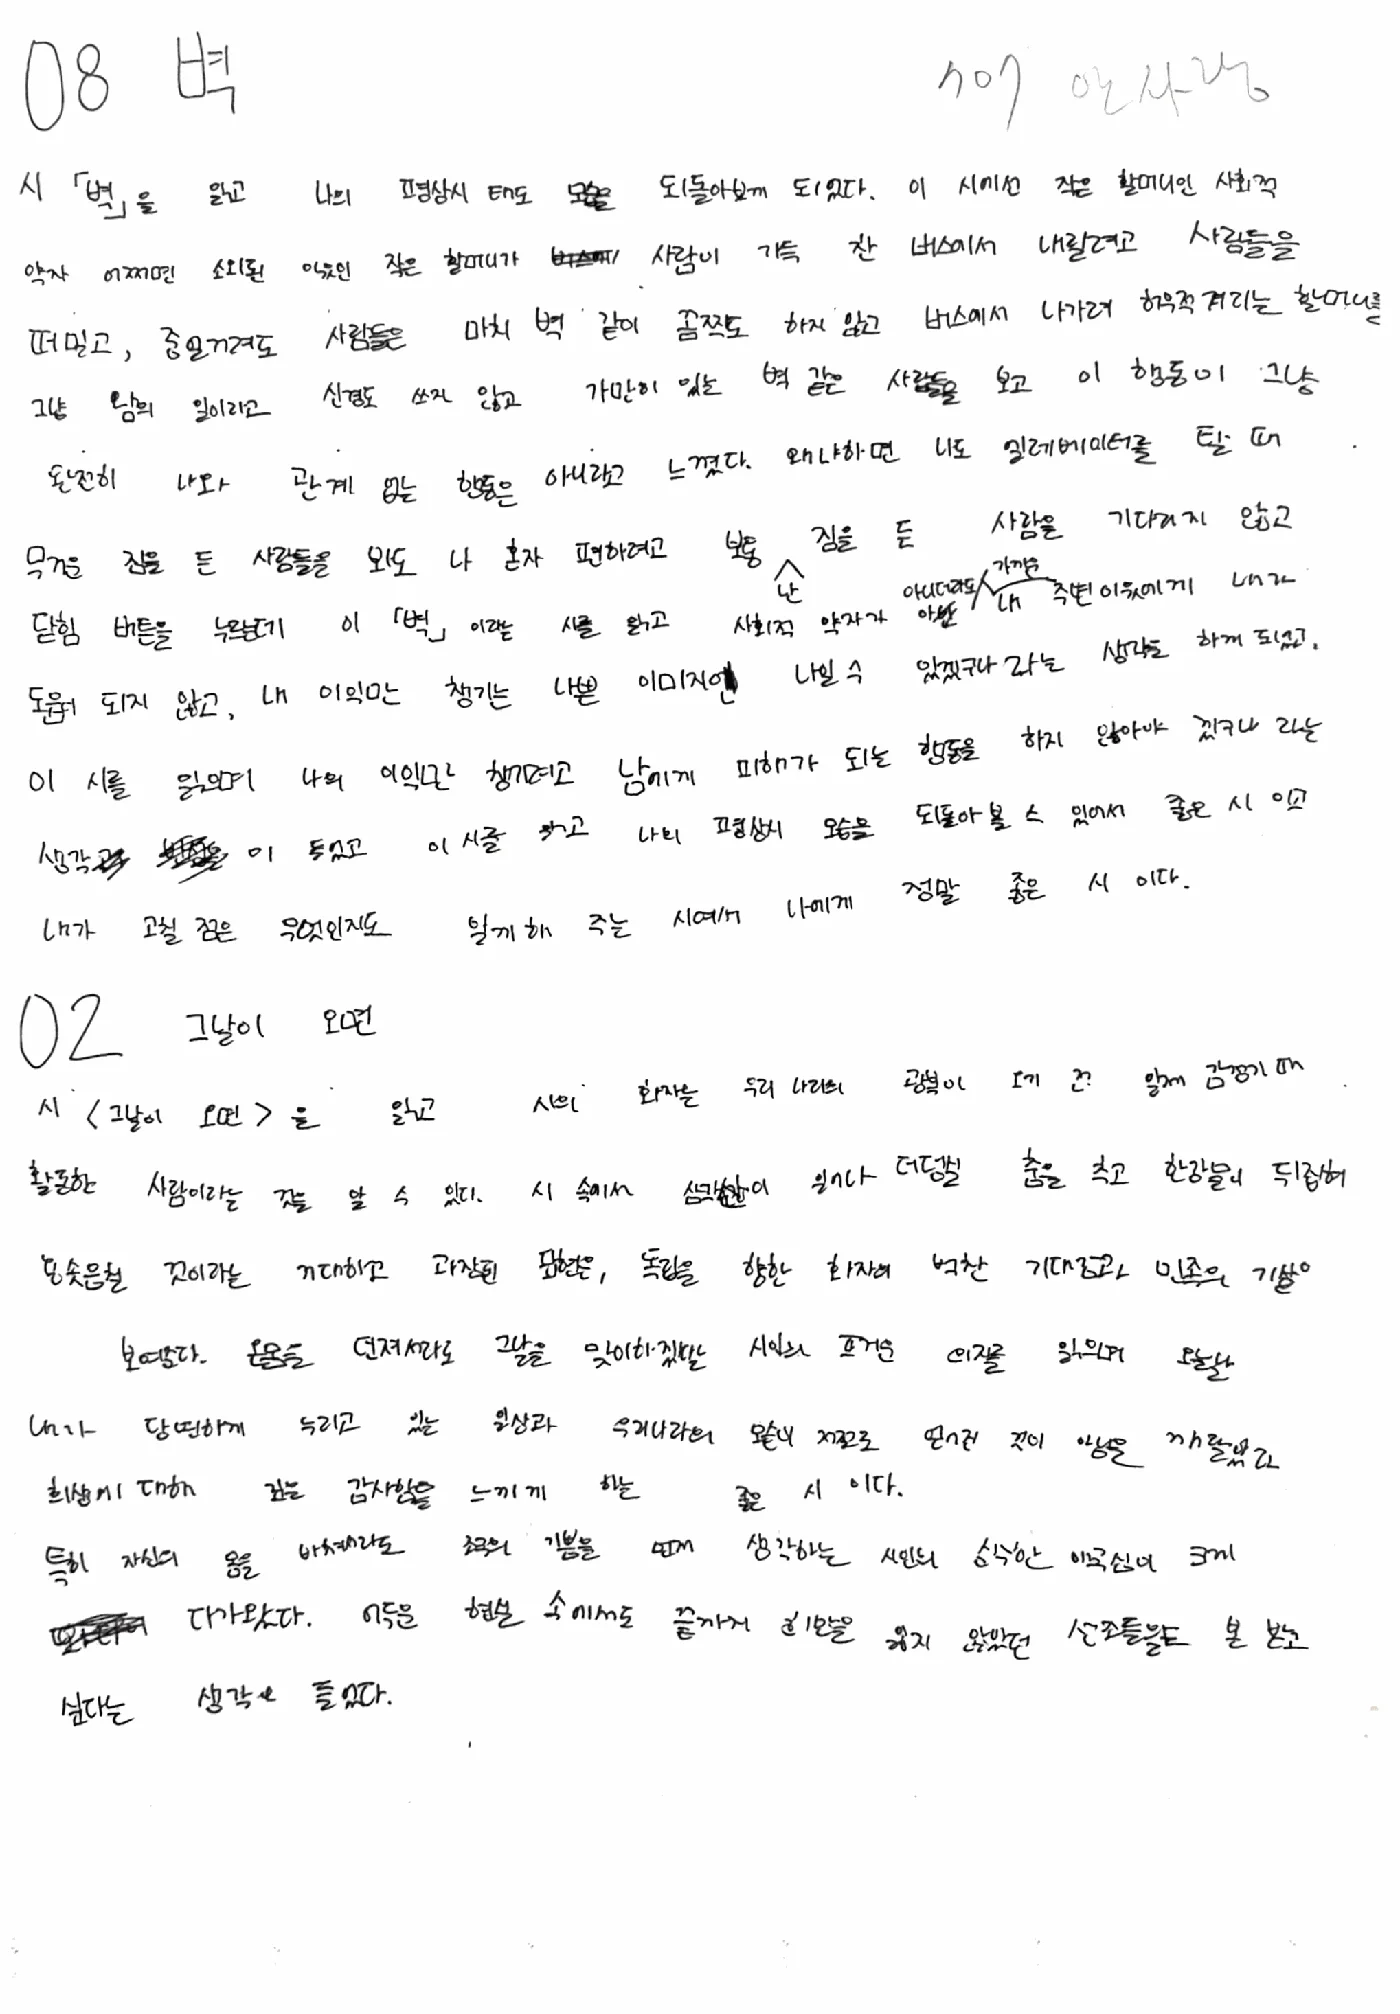 08 벽
707 안사랑
시 「벽」을 읽고 나의 평상시 태도 모습을 되돌아보게 되었다. 이 시에선 작은 할머니인 사회적
약자 어쩌면 소외된 이웃인 작은 할머니가 사람이 가득 찬 버스에서 내릴려고 사람들을
떠밀고, 중얼거려도 사람들은 마치 벽 같이 꼼짝도 하지 않고 버스에서 나가려 허우적거리는 할머니를
그냥 남의 일이라고 신경도 쓰지 않고 가만히 있는 벽 같은 사람들을 보고 이 행동이 그냥
완전히 나와 관계 없는 행동은 아니라고 느꼈다. 왜냐하면 나도 엘레베이터를 탈 때
무거운 짐을 든 사람들을 봐도 나 혼자 편하려고 보통 난 짐을 든 사람을 기다리지 않고
닫힘 버튼을 누르는데 이 「벽」이라는 시를 읽고 사회적 약자가 아니더라도 내 가까운 주변 이웃에게 내가
도움이 되지 않고, 내 이익만 챙기는 나쁜 이미지인 나일 수 있겠구나 라는 생각도 하게 되었고.
이 시를 읽으며 나의 이익만 챙기려고 남에게 피해가 되는 행동을 하지 않아야 겠구나 라는
생각이 들었고 이 시를 읽고 나의 평상시 모습을 되돌아 볼 수 있어서 좋은 시 이고
내가 고칠 점은 무엇인지도 알게 해 주는 시여서 나에게 정말 좋은 시 이다.
02 그날이 오면
시 <그날이 오면>을 읽고 시의 화자는 우리 나라의 광복이 오기 전 일제 강점기 때
활동한 사람이라는 것을 알 수 있다. 시 속에서 삼각산이 일어나 더덩실 춤을 추고 한강물이 뒤집혀
용솟음칠 것이라는 거대하고 과장된 표현은, 독립을 향한 화자의 벅찬 기대감과 민족의 기쁨이
보여진다. 온몸을 던져서라도 그날을 맞이하겠다는 시인의 뜨거운 의지를 읽으며 오늘날
내가 당연하게 누리고 있는 일상과 우리나라의 모습이 저절로 얻어진 것이 아님을 깨달았고
희생에 대해 깊은 감사함을 느끼게 하는 좋은 시 이다.
특히 자신의 몸을 바쳐서라도 조국의 기쁨을 먼저 생각하는 시인의 순수한 애국심이 크게
다가왔다. 어두운 현실 속에서도 끝까지 희망을 잃지 않았던 선조들을 본받고
싶다는 생각도 들었다.